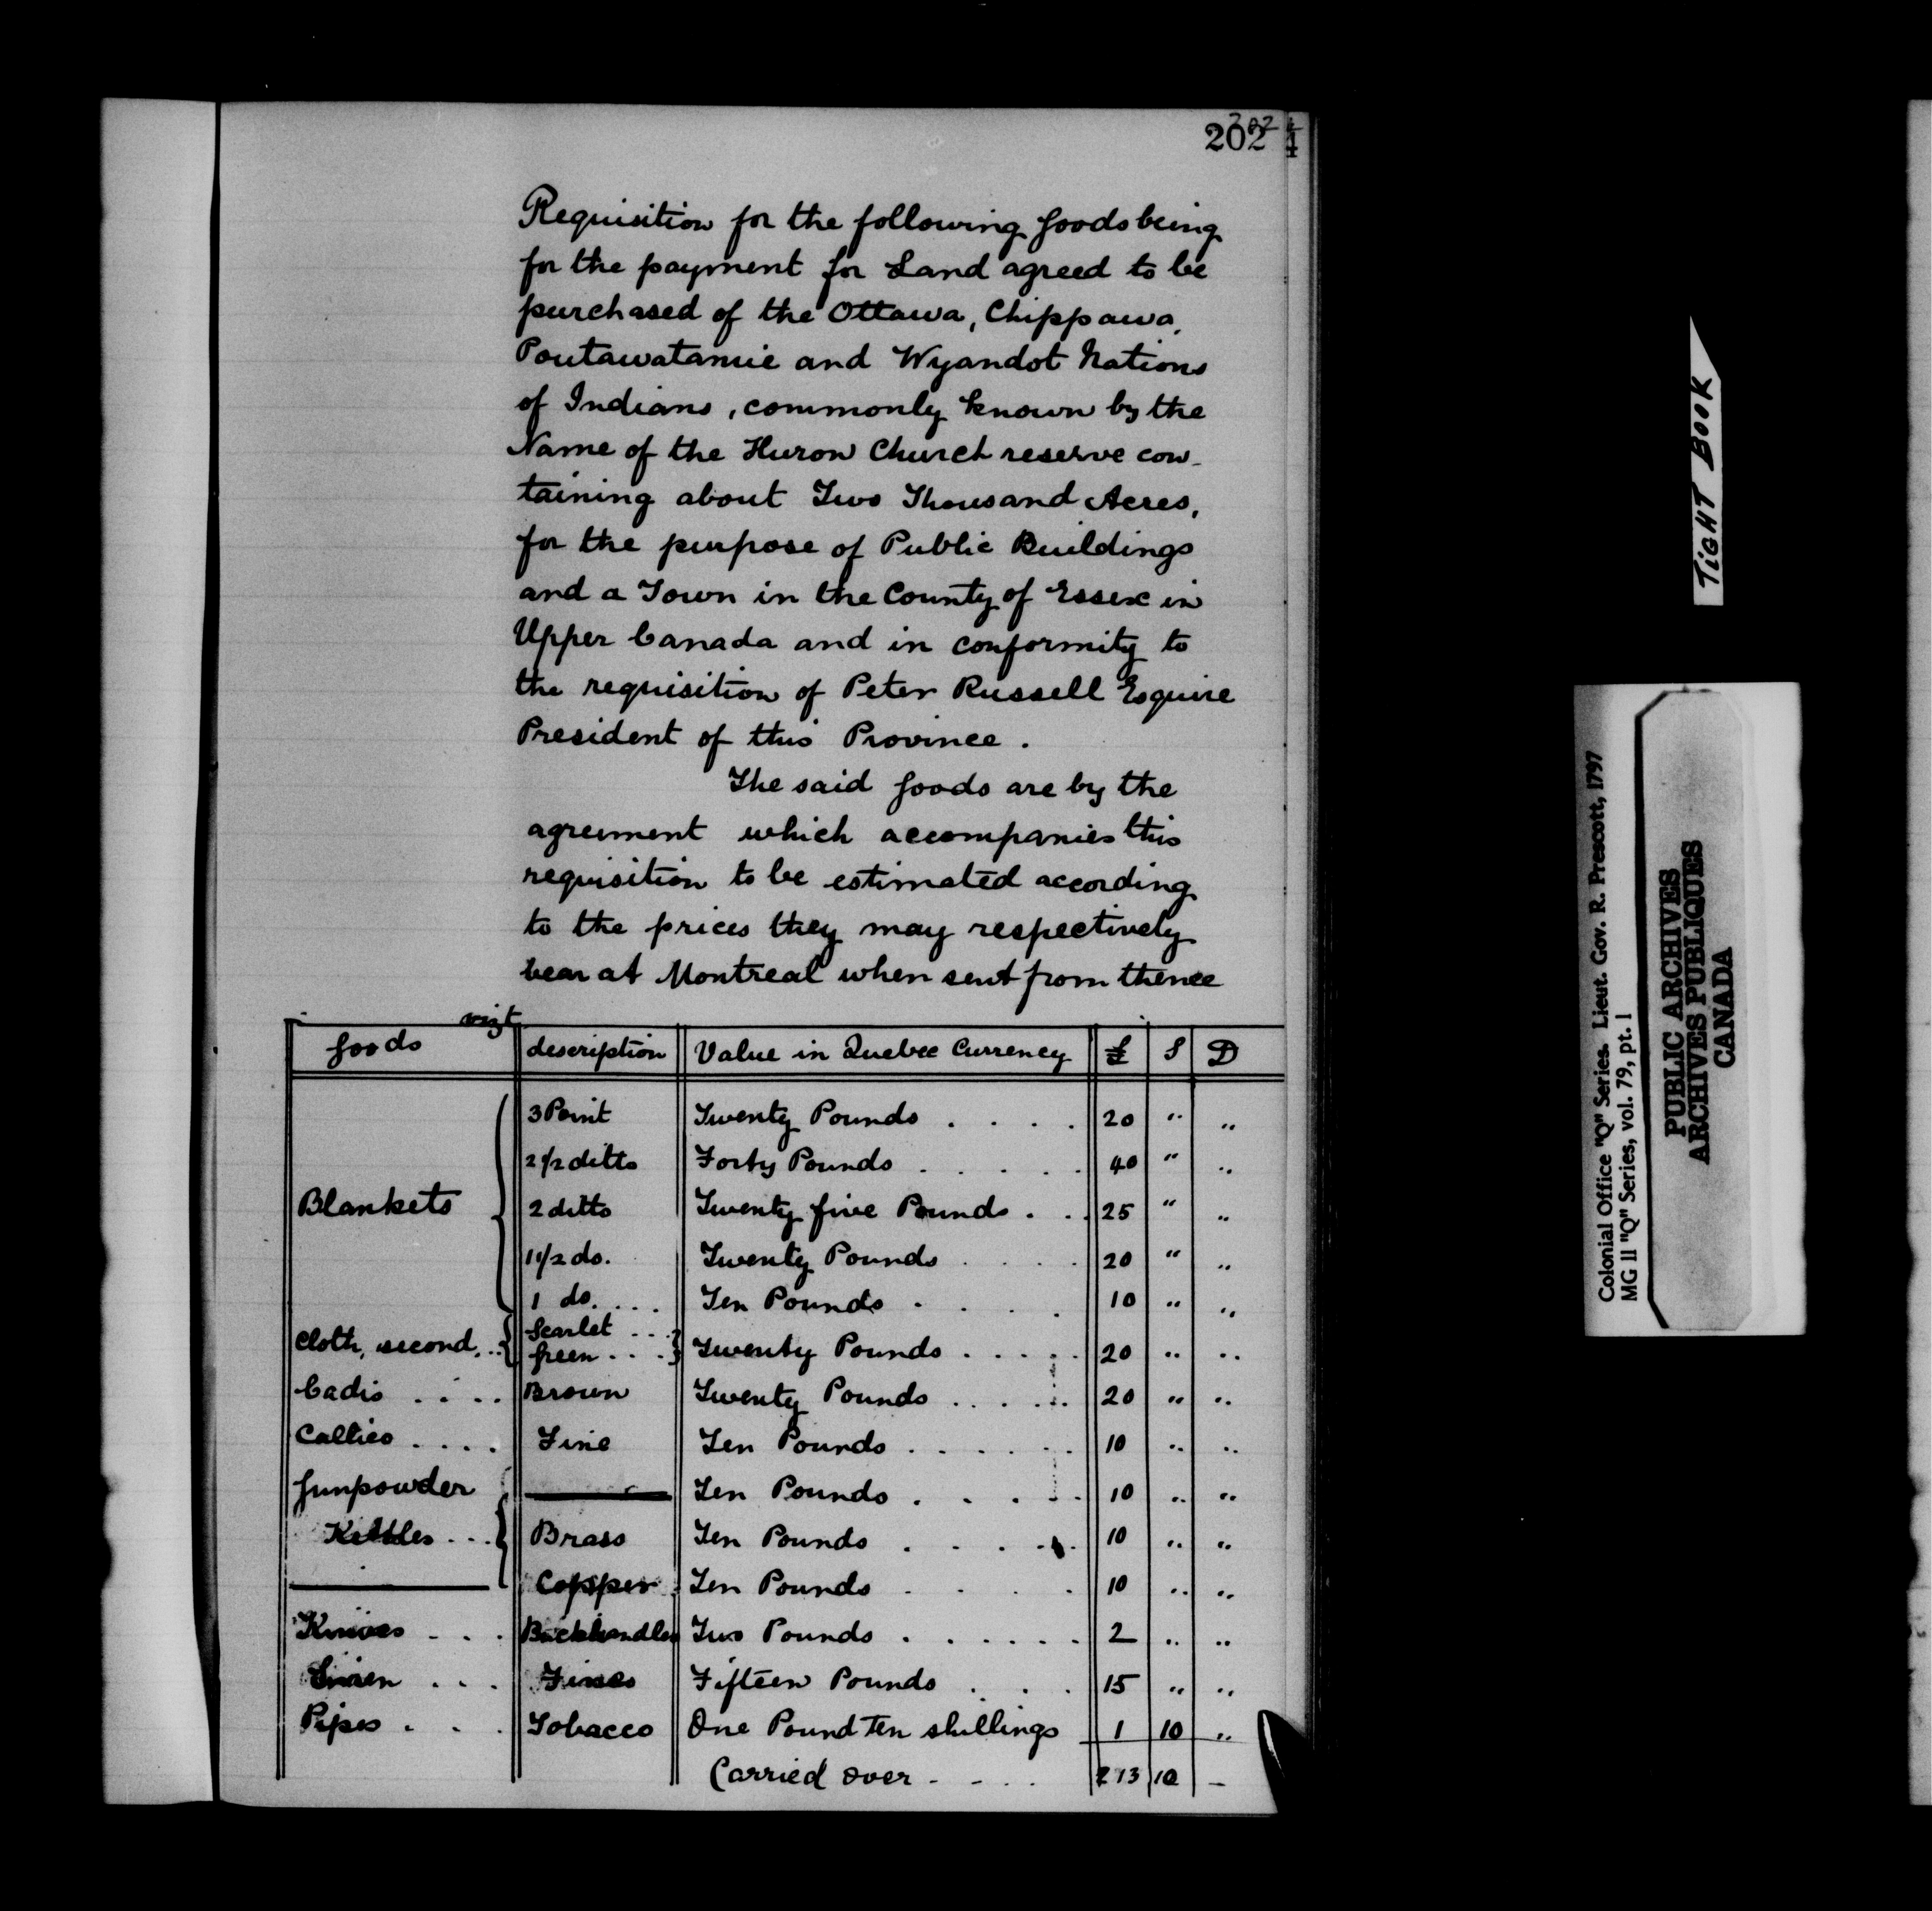 202 202 1/4
Requisition for the following Goods being
for the payment for Land agreed to be
purchased of the Ottawa, Chippawa,
Poutawatamie and Wyandot Nations
of Indians, commonly known by the
Name of the Huron Church reserve con-
taining about Two Thousand Acres,
for the purpose of Public Buildings
and a Town in the County of Essex in
Upper Canada and in conformity to
the requisition of Peter Russell Esquire
President of this Province.
The said Goods are by the
agreement which accompanies this
requisition to be estimated according
to the prices they may respectively
bear at Montreal when sent from thence
vizt
Goods description Value in Quebec Currency £ S D
3 Point Twenty Pounds . . . . 20 " "
2 1/2 ditto Forty Pounds . . . . . 40 " "
Blankets 2 ditto Twenty five Pounds . . . 25 " "
1 1/2 do. Twenty Pounds . . . . 20 " "
1 do. . . . Ten Pounds . . . . 10 " "
Cloth, second, .. Scarlet . . .
Green . . . Twenty Pounds . . . . . 20 " "
Cadis . . . . Brown Twenty Pounds . . . . . 20 " "
Callico . . . . Fine Ten Pounds . . . . . . 10 " "
Gunpowder —— Ten Pounds . . . . . 10 " "
Kettles . . . Brass Ten Pounds . . . . . 10 " "
—— Copper . Ten Pounds . . . . 10 " "
Knives . . . Buckhandles Two Pounds . . . . . . 2 " "
Linen . . . Fifteen Pounds . . . 15 " "
Pipes . . . Tobacco One Pound Ten shillings 1 10 "
Carried over . . . . 213 10 –
TIGHT BOOK
Colonial Office "Q" Series. Lieut. Gov. R. Prescott, 1797
MG 11 "Q" Series, vol. 79, pt. 1
PUBLIC ARCHIVES
ARCHIVES PUBLIQUES
CANADA